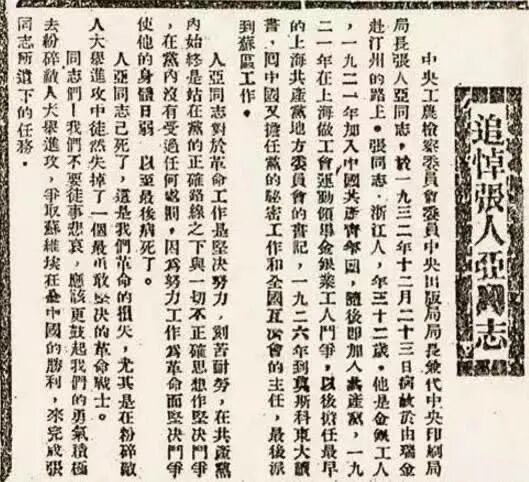 追悼張人亞同志
中央工農檢察委員會委員中央出版局局長兼代中央印刷局
局長張人亞同志，於一九三二年十二月二十三日病故於由瑞金
赴汀州的路上。張同志，浙江人，年三十二歲。他是金銀工人
，一九二一年加入中國共產青年團，隨後即加入共產黨，一九
二一年在上海做工會運動領導金銀業工人鬥爭，以後擔任最早
的上海共產黨地方委員會的書記，一九二六年到莫斯科東大讀
書，回中國又擔任黨的秘密工作和全國互濟會的主任，最後派
到蘇區工作。
人亞同志對於革命工作是堅决努力，刻苦耐勞，在共產黨
內始終是站在黨的正確路線之下與一切不正確思想作堅决鬥爭
，在黨內沒有受過任何處罰，因爲努力工作爲革命而堅决鬥爭
使他的身體日弱 以至最後病死了。
人亞同志已死了，這是我們革命的損失，尤其是在粉碎敵
人大舉進攻中徒然失掉了一個最勇敢堅决的革命戰士。
同志們！我們不要徒事悲哀，應該更鼓起我們的勇氣積極
去粉碎敵人大舉進攻，爭取蘇維埃在全中國的勝利，來完成張
同志所遺下的任務。